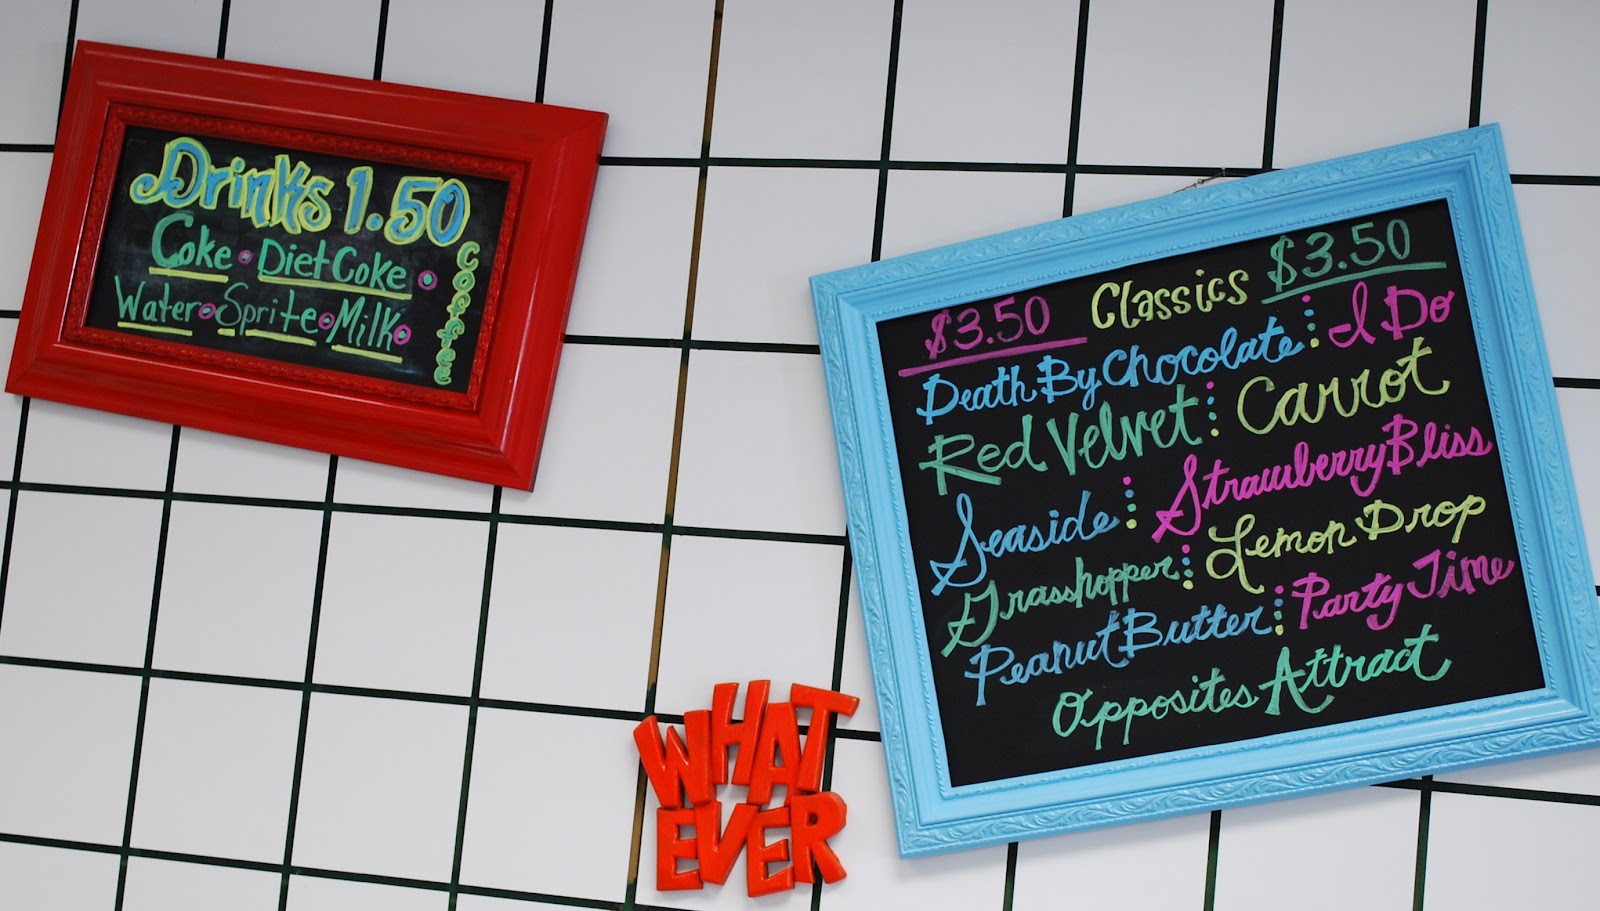 Drinks 1.50
Coke • Diet Coke •
Water • Sprite • Milk •
Coffee
$3.50 Classics $3.50
Death By Chocolate : I Do
Red Velvet : Carrot
Seaside : Strawberry Bliss
Grasshopper : Lemon Drop
Peanut Butter : Party Time
Opposites Attract
WHAT
EVER